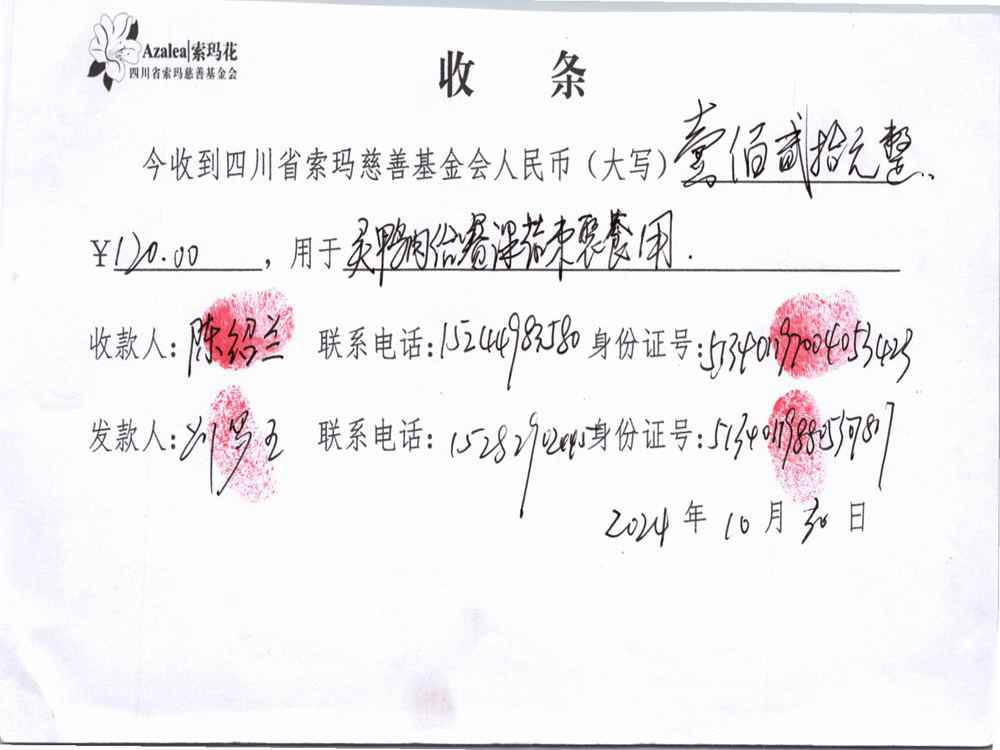 Azalea|索玛花
四川省索玛慈善基金会
收 条
今收到四川省索玛慈善基金会人民币（大写）壹佰贰拾元整
￥120.00，用于买鸭肉给赛课结束聚餐用.
收款人：陈绍兰 联系电话：15244983580 身份证号：
发款人： 联系电话： 身份证号：
2024年10月30日